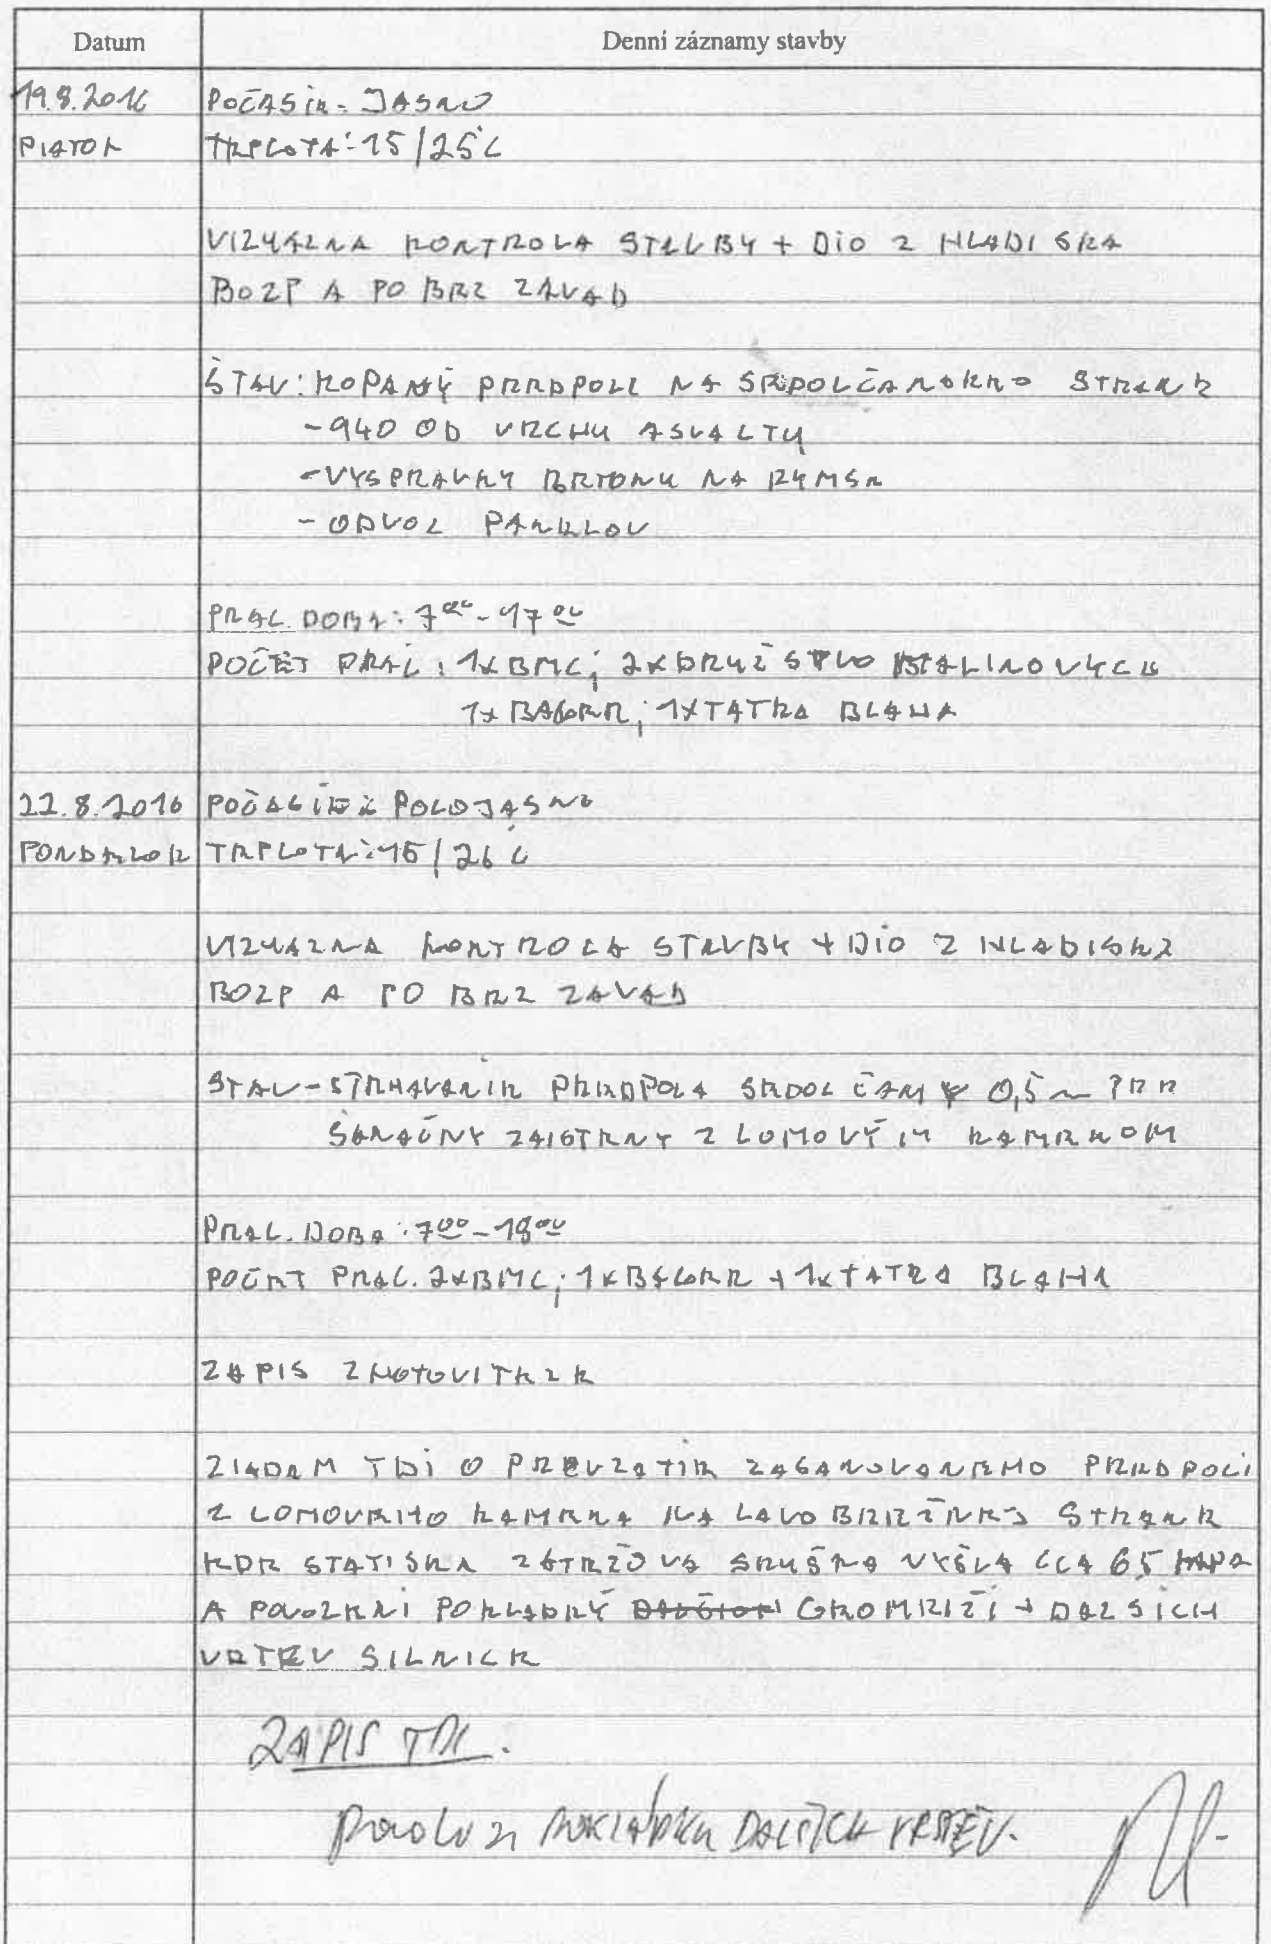 Datum Denní záznamy stavby
19.8.2016 POČASIE: JASNO
PIATOK TEPLOTA: 15/25°C
VIZUÁLNA KONTROLA STAVBY + DIO Z HLADISKA
BOZP A PO BEZ ZÁVAD
ŠTAV: KOPANÝ PREDPOLI NA STRANE
-940 OD VRCHU ASVALTU
-VYSPRAVKY BETONU NA RYMSE
- ODVOZ PANELOV
PRAC. DOBA: 700-1700
POČET PRAC: 1xBMC; 2xDRUŽSTVO
1x BAGER; 1xTATRA BLAHA
22.8.2016 POČASIE: POLOJASNE
PONDELOK TEPLOTA: 15/26°C
VIZUALNA KONTROLA STAVBY + DIO Z HLADISKA
BOZP A PO BEZ ZAVAD
STAV-STRHAVANIE PREDPOLA 0,5m PRE
SANAČNY Z LOMOVÝM KAMENOM
PRAC. DOBA: 700-1800
POČET PRAC. 2xBMC; 1xBAGER + 1xTATRA BLAHA
ZAPIS ZHOTOVITELE
ZIADAM TDI O PREVZATIE ZASANOVANEHO PREDPOLI
Z LOMOVEHO KAMENA NA LAVOBREŽNEJ STRANE
KDE STATISKA ZATEŽOVA SKUŠKA VYŠLA CCA 65 MPA
A POVOLENI POKLADKY GROMEIZÍ + DALSICH
VRTEV SILNICE
ZAPIS TDI.
Povoluji POKLÁDKU DALŠÍCH VRSTEV.